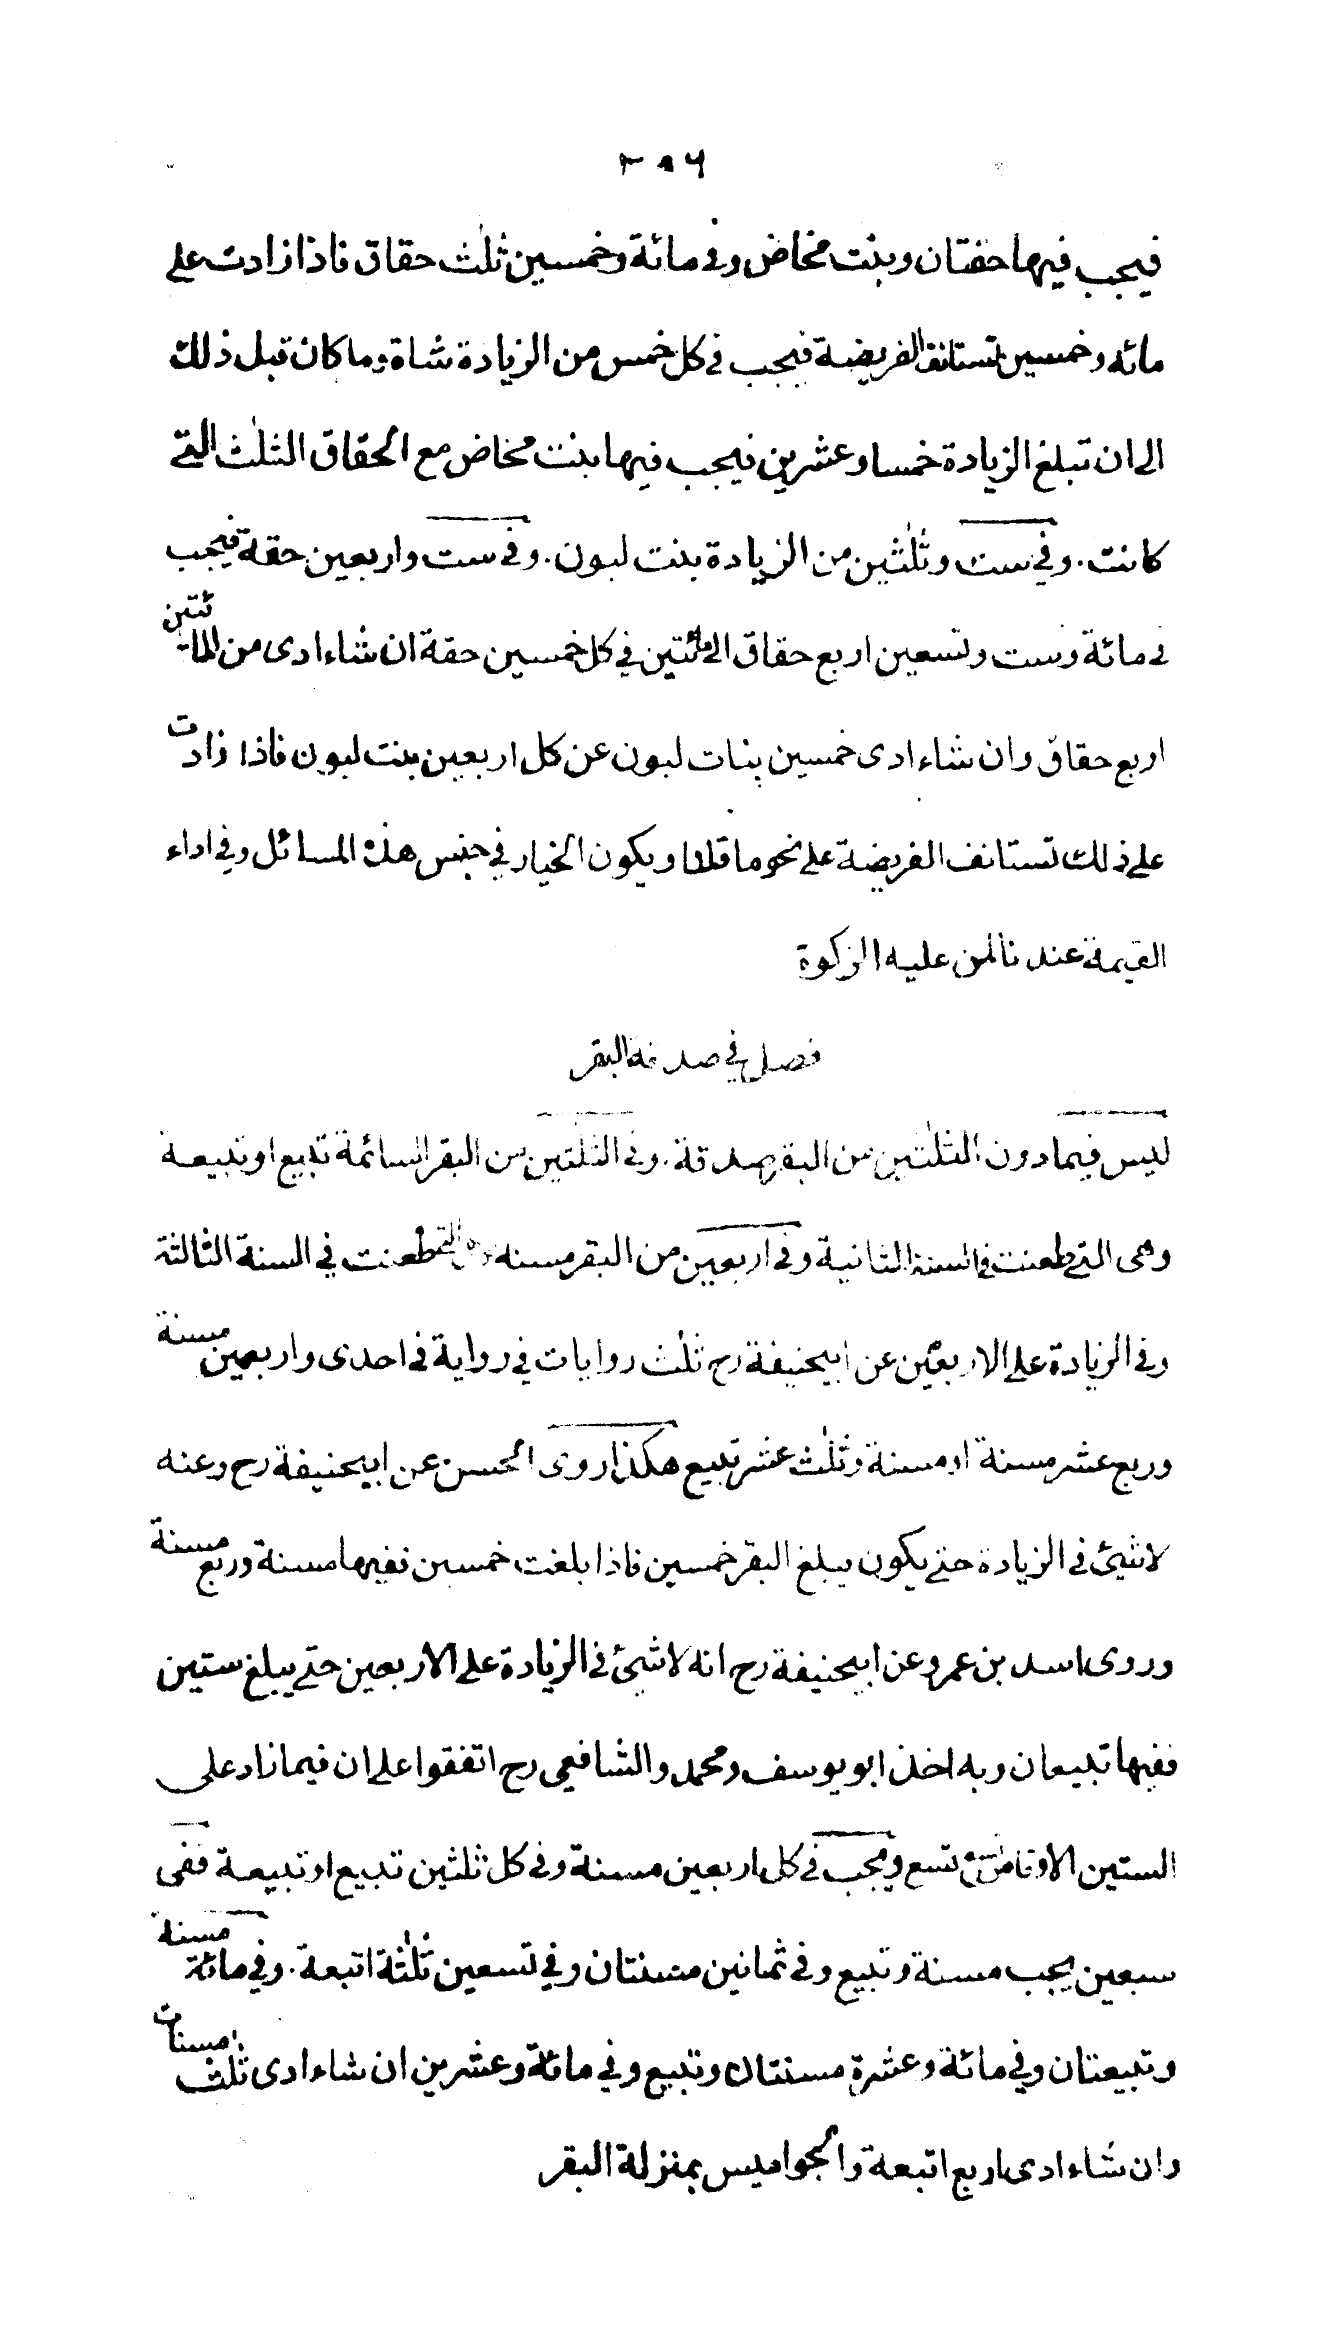 ٢٥٦
فيجب فيها حقتان وبنت مخاض وفى مائة وخمسين ثلٰث حقاق فاذا زادت على
مائه وخمسين تستانف الفريضة فيجب فى كل خمس من الزيادة شاة وما كان قبل ذلك
الى ان تبلغ الزيادة خمسا وعشرين فيجب فيها بنت مخاض مع الحقاق الثلٰث التى
كانت. وفى ست وثلٰثين من الزيادة بنت لبون. وفى ست واربعين حقة فيجب
فى مائة وست وتسعين اربع حقاق الى مائتين فى كل خمسين حقة ان شاء ادى من المائتين
اربع حقاق وان شاء ادى خمسين بنات لبون عن كل اربعين بنت لبون فاذا زادت
على ذلك تستانف الفريضة على نحو ما قلنا ويكون الخيار فى جنس هذه المسائل وفى اداء
القيمة عندنا لمن عليه الزكوة
فصل فى صدقة البقر
ليس فيما دون الثلٰثين من البقر صدقة. وفى الثلثين من البقر السائمة تبيع او تبيعة
وهى التى طعنت فى السنة الثانية وفى اربعين من البقر مسنه التى طعنت فى السنة الثالثة
وفى الزيادة على الاربعين عن ابيحنيفة رح ثلٰث روايات فى رواية فى احدى واربعين مسنة
وربع عشر مسنة او مسنة وثلٰث عشر تبيع هكذا روى الحسن عن ابيحنيفة رح وعنه
لا شيئ فى الزيادة حتى يكون يبلغ البقر خمسين فاذا بلغت خمسين ففيها مسنة وربع مسنة
وروى اسد بن عمرو عن ابيحنيفة رح انه لا شيئ فى الزيادة على الاربعين حتى يبلغ ستين
ففيها تبيعان وبه اخذ ابو يوسف ومحمد والشافعى رح اتفقوا على ان فيما زاد على
الستين الاوقاص تسع تسع ويجب فى كل اربعين مسنة وفى كل ثلثين تبيع او تبيعة ففى
سبعين يجب مسنة وتبيع وفى ثمانين مسنتان وفى تسعين ثلٰثة اتبعة. وفى مائة مسنة
وتبيعتان وفى مائة وعشرة مسنتان وتبيع وفى مائة وعشرين ان شاء ادى ثلٰث مسنات
وان شاء ادى اربع اتبعة والجواميس بمنزلة البقر